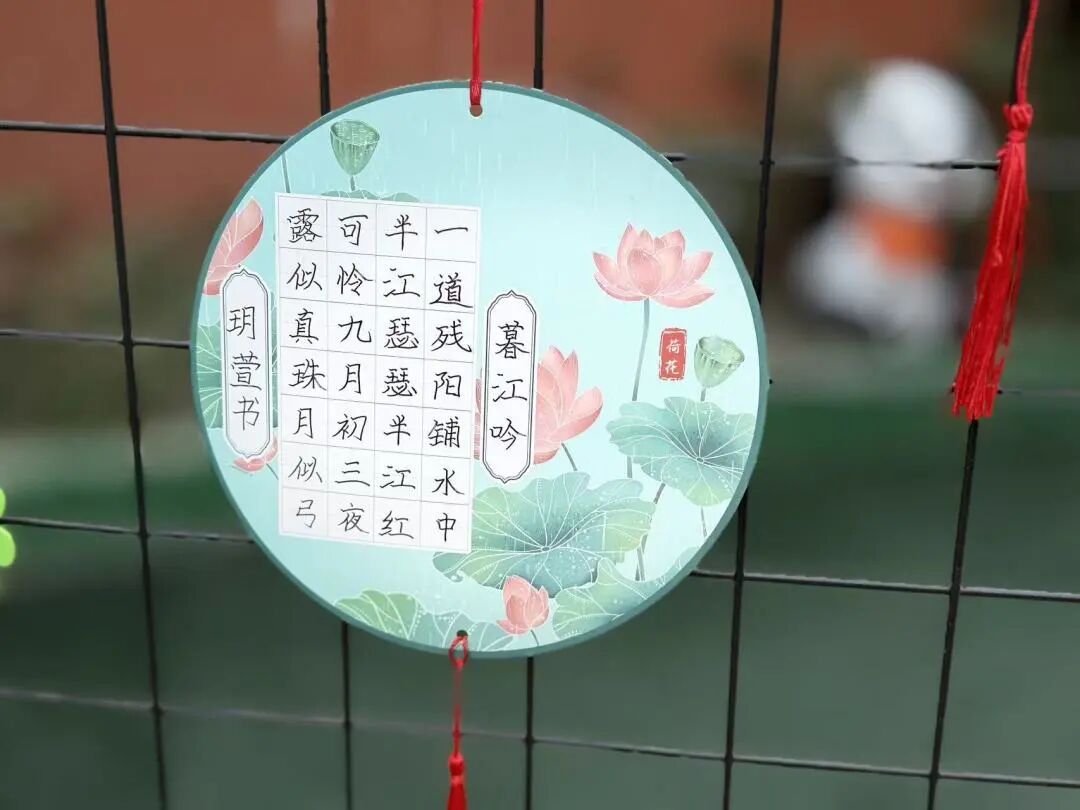 荷花
暮江吟
一道残阳铺水中
半江瑟瑟半江红
可怜九月初三夜
露似真珠月似弓
玥萱书